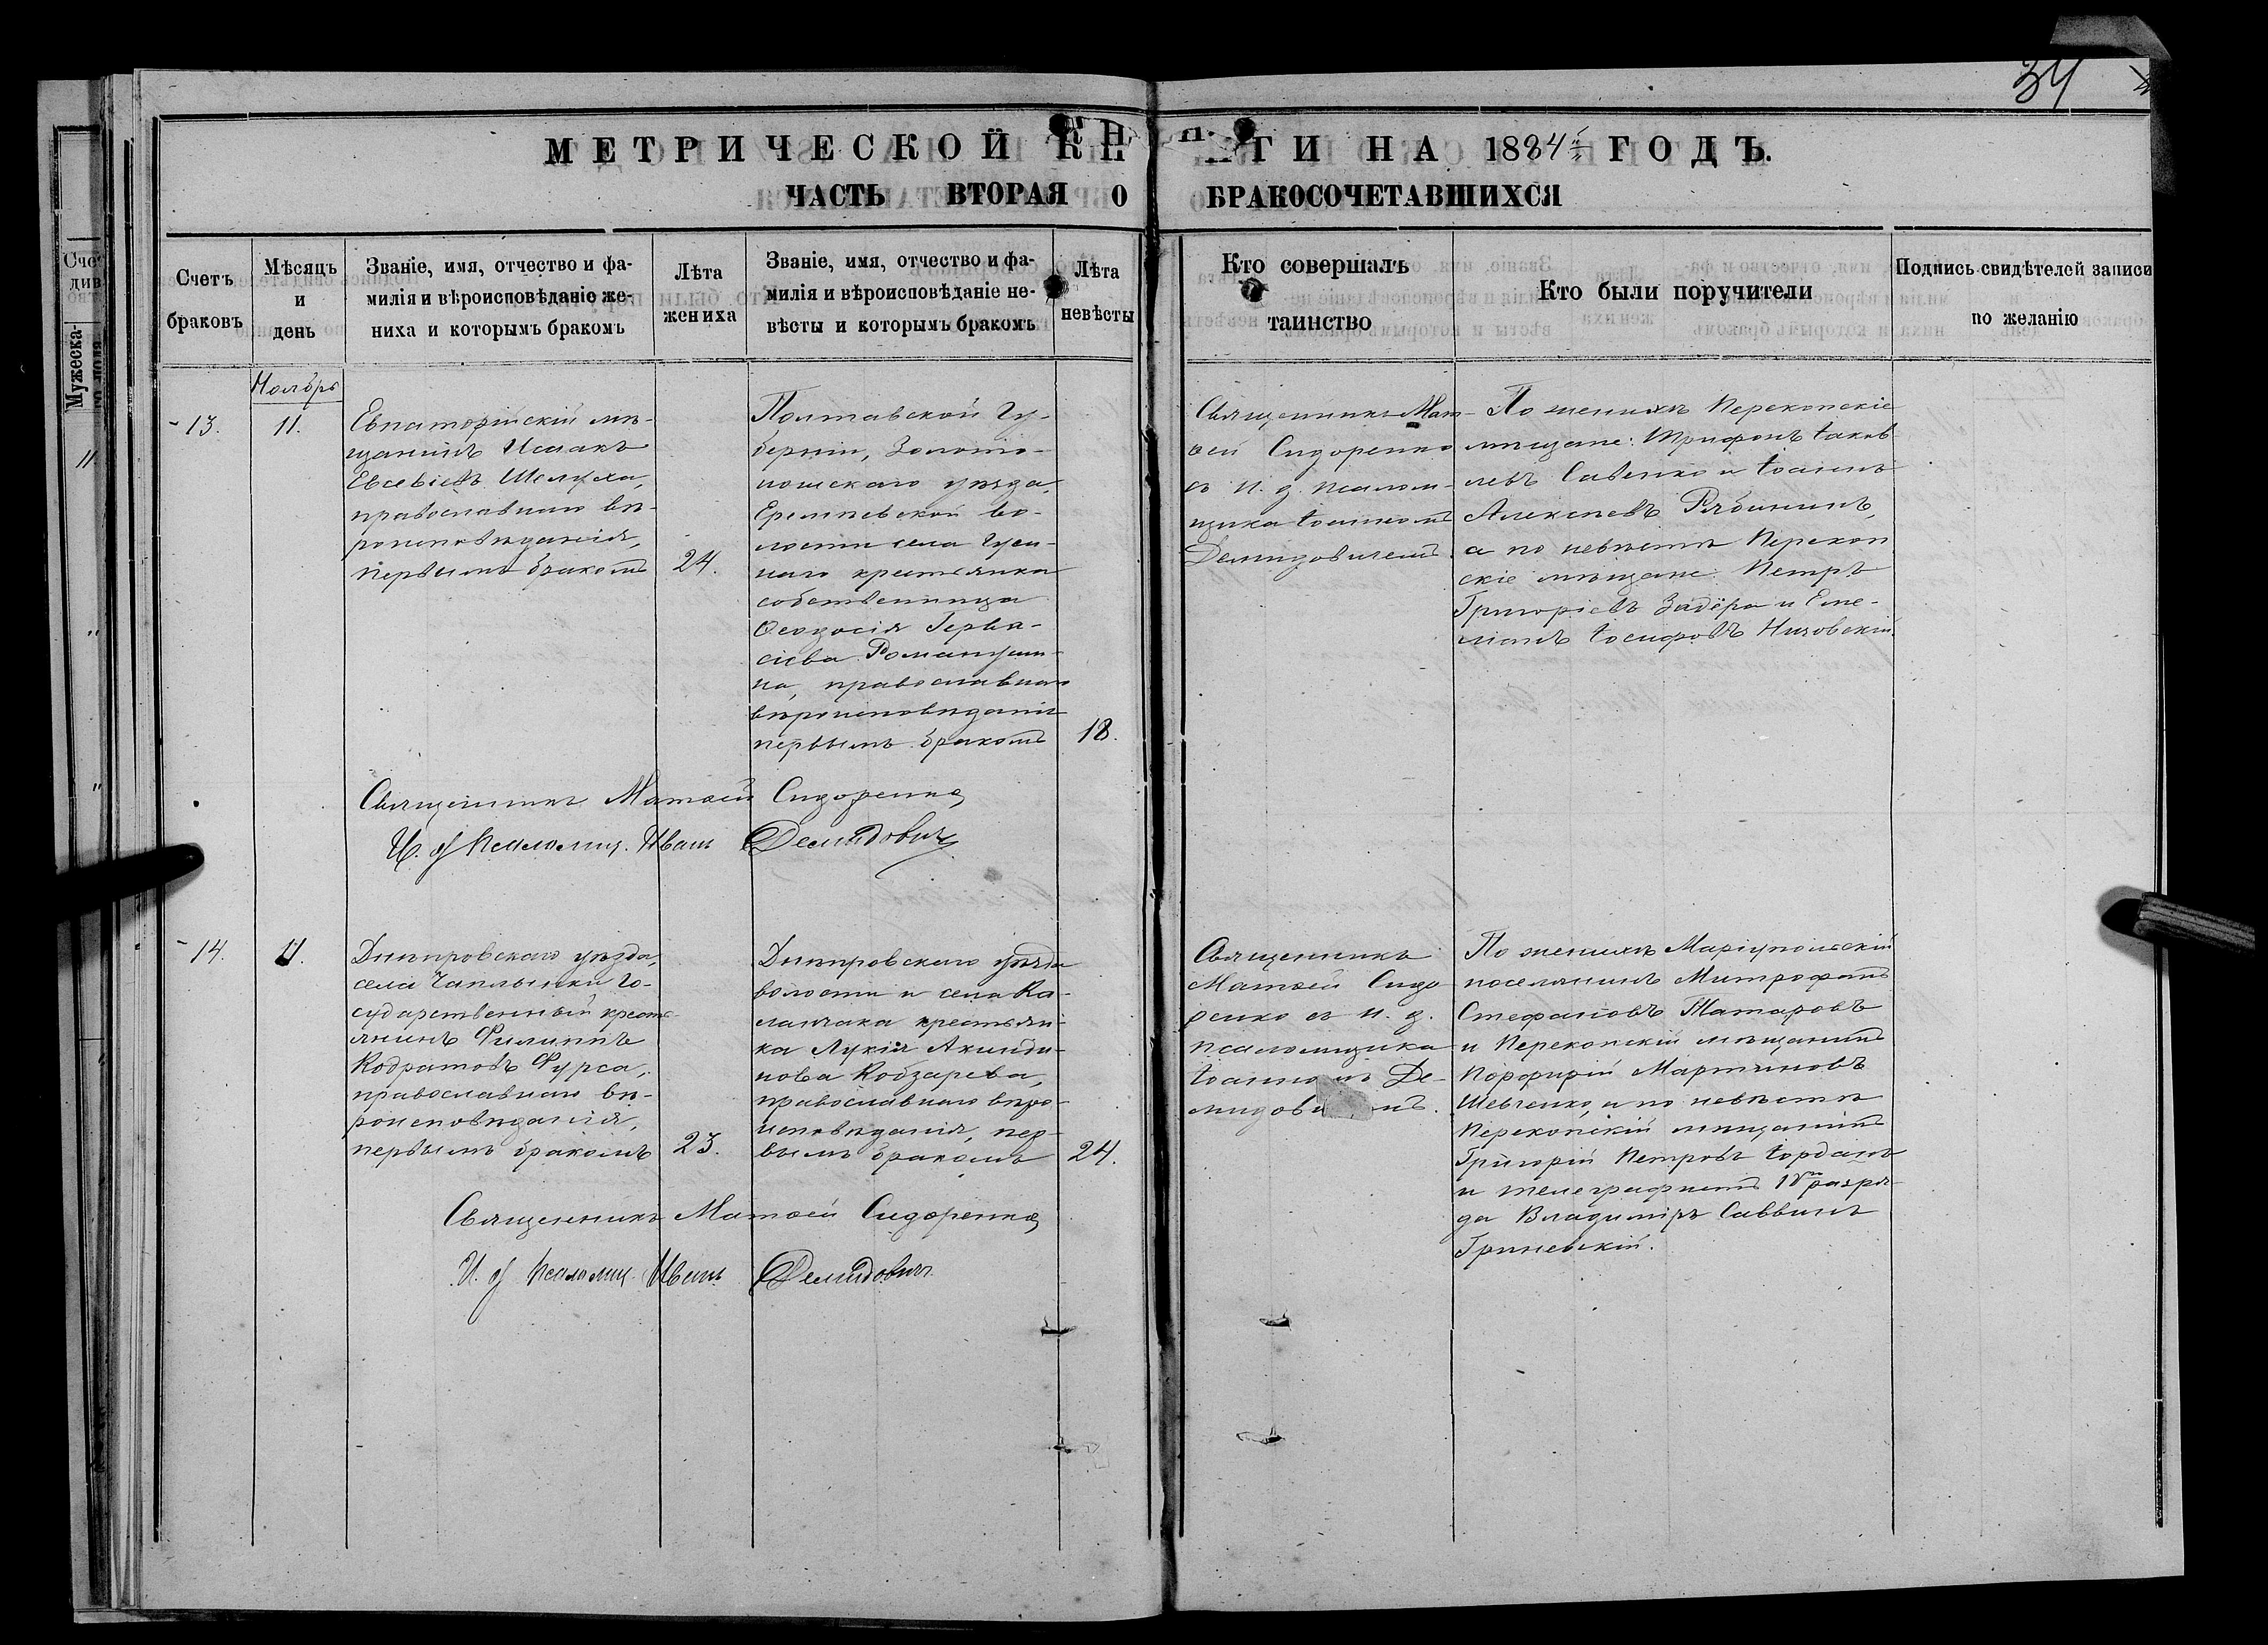 34
МЕТРИЧЕСКОЙ КН ГИ НА 1884 й ГОДЪ.
ЧАСТЬ ВТОРАЯ О БРАКОСОЧЕТАВШИХСЯ
Счетъ
браковъ
Мѣсяцъ
и
день
Званіе, имя, отчество и фа-
милія и вѣроисповѣданіе же-
ниха и которымъ бракомъ
Лѣта
жениха
Званіе, имя, отчество и фа-
милія и вѣроисповѣданіе не-
вѣсты и которымъ бракомъ
Лѣта
невѣсты
Кто совершалъ
таинство
Кто были поручители
Подпись свидѣтелей записи
по желанію
Ноябрь
13.
11.
Евпаторійскій мѣ-
щанинъ Исаакъ
Евсевіевъ Шелуха,
православнаго вѣ-
роисповѣданія,
первымъ бракомъ
24.
Полтавской Гу-
берніи, Золото-
ношскаго уѣзда,
Еремѣевской во-
лости села
крестьянка
собственница
Ѳеодосія Герва-
сіева
на, православнаго
вѣроисповѣданія
первымъ бракомъ
18.
Священникъ Мат-
ѳей Сидоренко
съ и. д. псалом-
щика Іоанномъ
Демидовичемъ.
По женихѣ Перекопскіе
мѣщане: Трифонъ Іаков-
левъ Савенко и Іоаннъ
Алексѣевъ Рябининъ,
а по невѣстѣ Перекоп
скіе мѣщане: Петръ
Григоріевъ Задёра и Еме-
ліанъ Іосифовъ Низовскій.
Священникъ Матѳей Сидоренко
И. д Псаломщ. Иванъ Демидовичъ
14.
11.
Днѣпровскаго уѣзда,
села Чаплынки Го-
сударственный кресть-
янинъ Филиппъ
Кодратовъ Фурса,
православнаго вѣ-
роисповѣданія,
первымъ бракомъ
23.
Днѣпровскаго уѣзда
волости и села Ка-
ланчака крестьян-
ка Лукія Акинди-
нова Кобзарева,
православнаго вѣро-
исповѣданія, пер-
вымъ бракомъ
24.
Священникъ
Матѳей Сидо
ренко съ и. д.
псаломщика
Іоанномъ Де-
мидови мъ.
По женихѣ Маріупольскій
поселянинъ Митрофанъ
Стефановъ Татаровъ
и Перекопскій мѣщанинъ
Порфирій Мартиновъ
Шевченко, а по невѣстѣ
Перекопскій мѣщанинъ
Григорій Петровъ Іорданъ
и телеграфистъ разря-
да Владиміръ Саввинъ
Гриневскій.
Священникъ Матѳей Сидоренко
И. д Псаломщ. Иванъ Демидовичъ